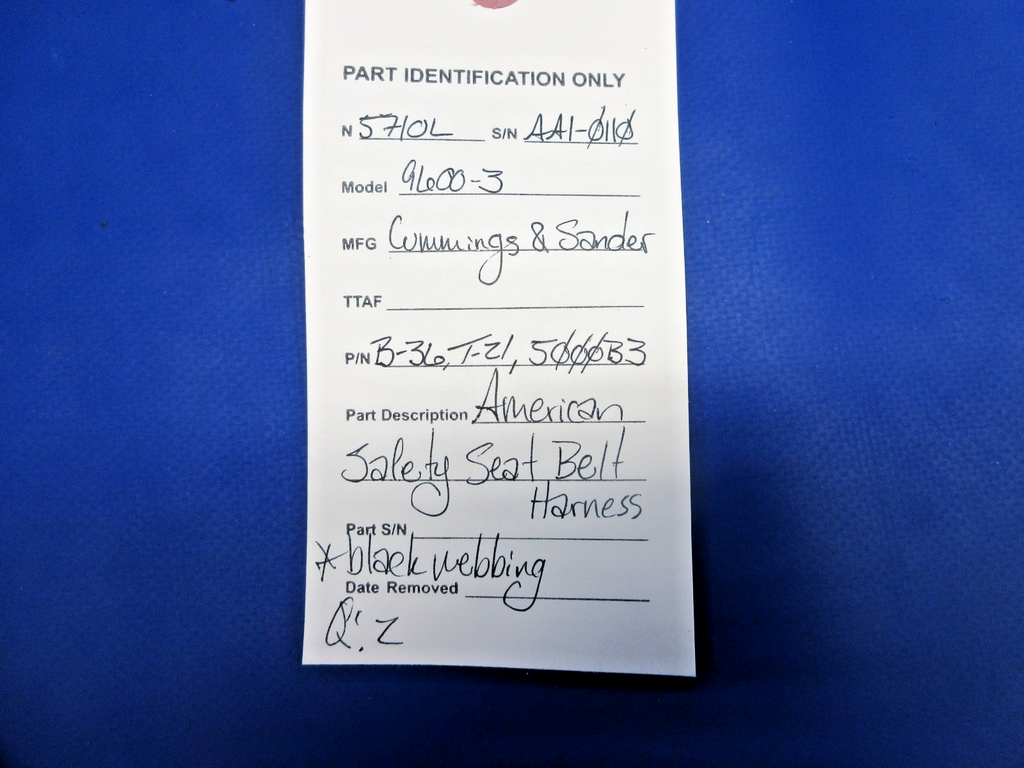 PART IDENTIFICATION ONLY
N 5710L S/N AA1-0110
Model 9600-3
MFG Cummings & Sander
TTAF
P/N B-36, T-21, 5000B3
Part Description American
Safety Seat Belt
Harness
Part S/N
*black webbing
Date Removed
Q: 2